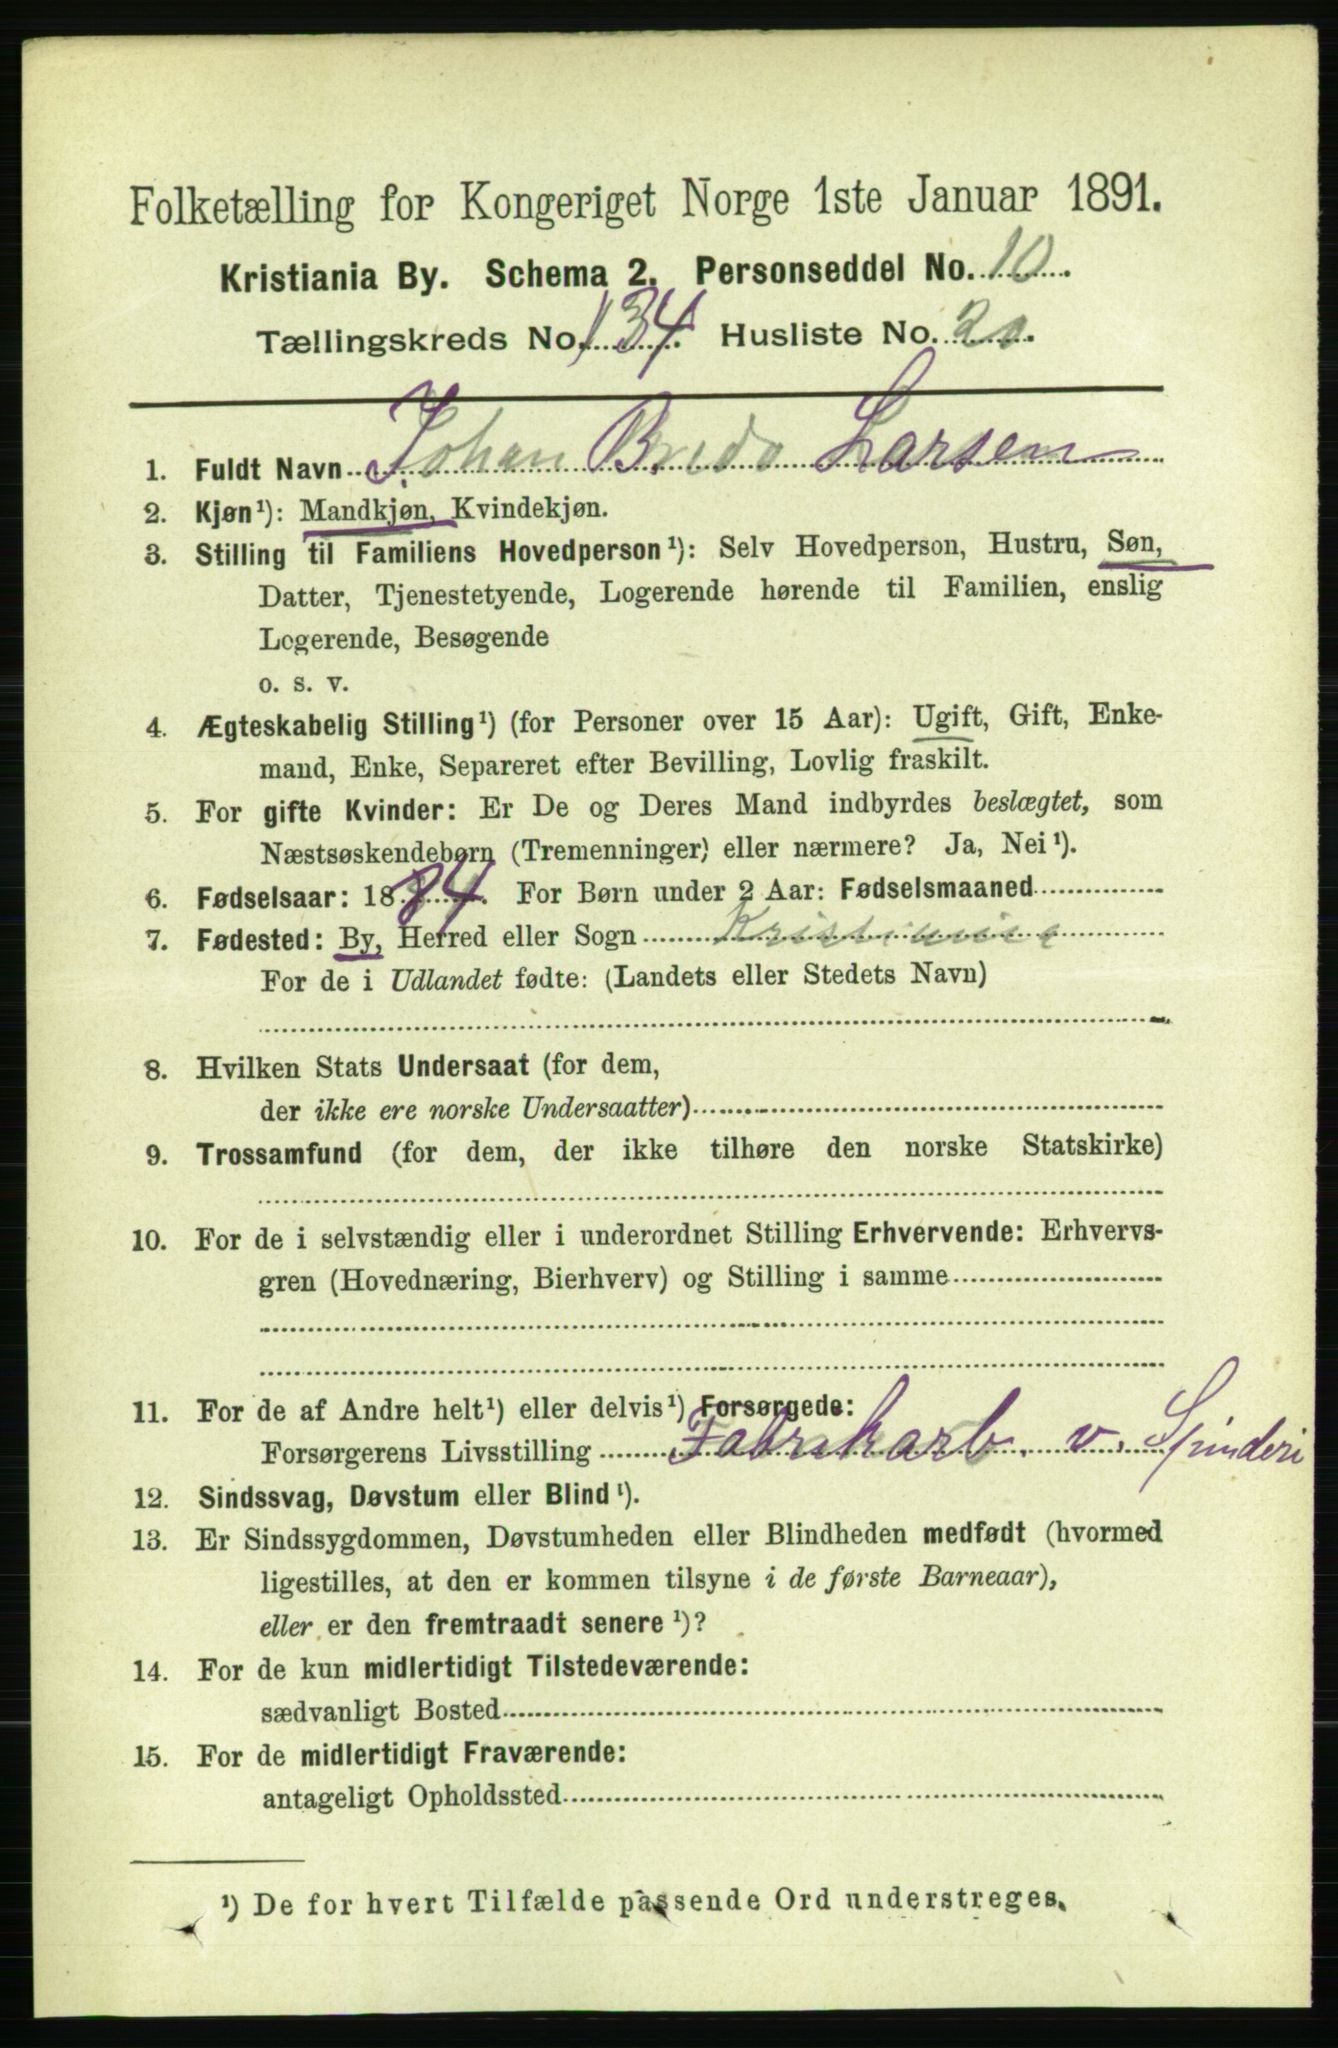 Folketælling for Kongeriget Norge 1ste Januar 1891.
Kristiania By. Schema 2. Personseddel No. 10.
Tællingskreds No. 134. Husliste No. 20.
1. Fuldt Navn Johan Bredo Larsen
2. Kjøn¹): Mandkjøn, Kvindekjøn.
3. Stilling til Familiens Hovedperson¹): Selv Hovedperson, Hustru, Søn,
Datter, Tjenestetyende, Logerende hørende til Familien, enslig
Logerende, Besøgende
o. s. v.
4. Ægteskabelig Stilling¹) (for Personer over 15 Aar): Ugift, Gift, Enke-
mand, Enke, Separeret efter Bevilling, Lovlig fraskilt.
5. For gifte Kvinder: Er De og Deres Mand indbyrdes beslægtet, som
Næstsøskendebørn (Tremenninger) eller nærmere? Ja, Nei¹).
6. Fødselsaar: 1884. For Børn under 2 Aar: Fødselsmaaned
7. Fødested: By, Herred eller Sogn Kristiania
For de i Udlandet fødte: (Landets eller Stedets Navn)
8. Hvilken Stats Undersaat (for dem,
der ikke ere norske Undersaatter)
9. Trossamfund (for dem, der ikke tilhøre den norske Statskirke)
10. For de i selvstændig eller i underordnet Stilling Erhvervende: Erhvervs-
gren (Hovednæring, Bierhverv) og Stilling i samme
11. For de af Andre helt¹) eller delvis¹) Forsørgede:
Forsørgerens Livsstilling Fabrikarb. v. Spinderi
12. Sindssvag, Døvstum eller Blind¹).
13. Er Sindssygdommen, Døvstumheden eller Blindheden medfødt (hvormed
ligestilles, at den er kommen tilsyne i de første Barneaar),
eller er den fremtraadt senere¹)?
14. For de kun midlertidigt Tilstedeværende:
sædvanligt Bosted
15. For de midlertidigt Fraværende:
antageligt Opholdssted
¹) De for hvert Tilfælde passende Ord understreges.